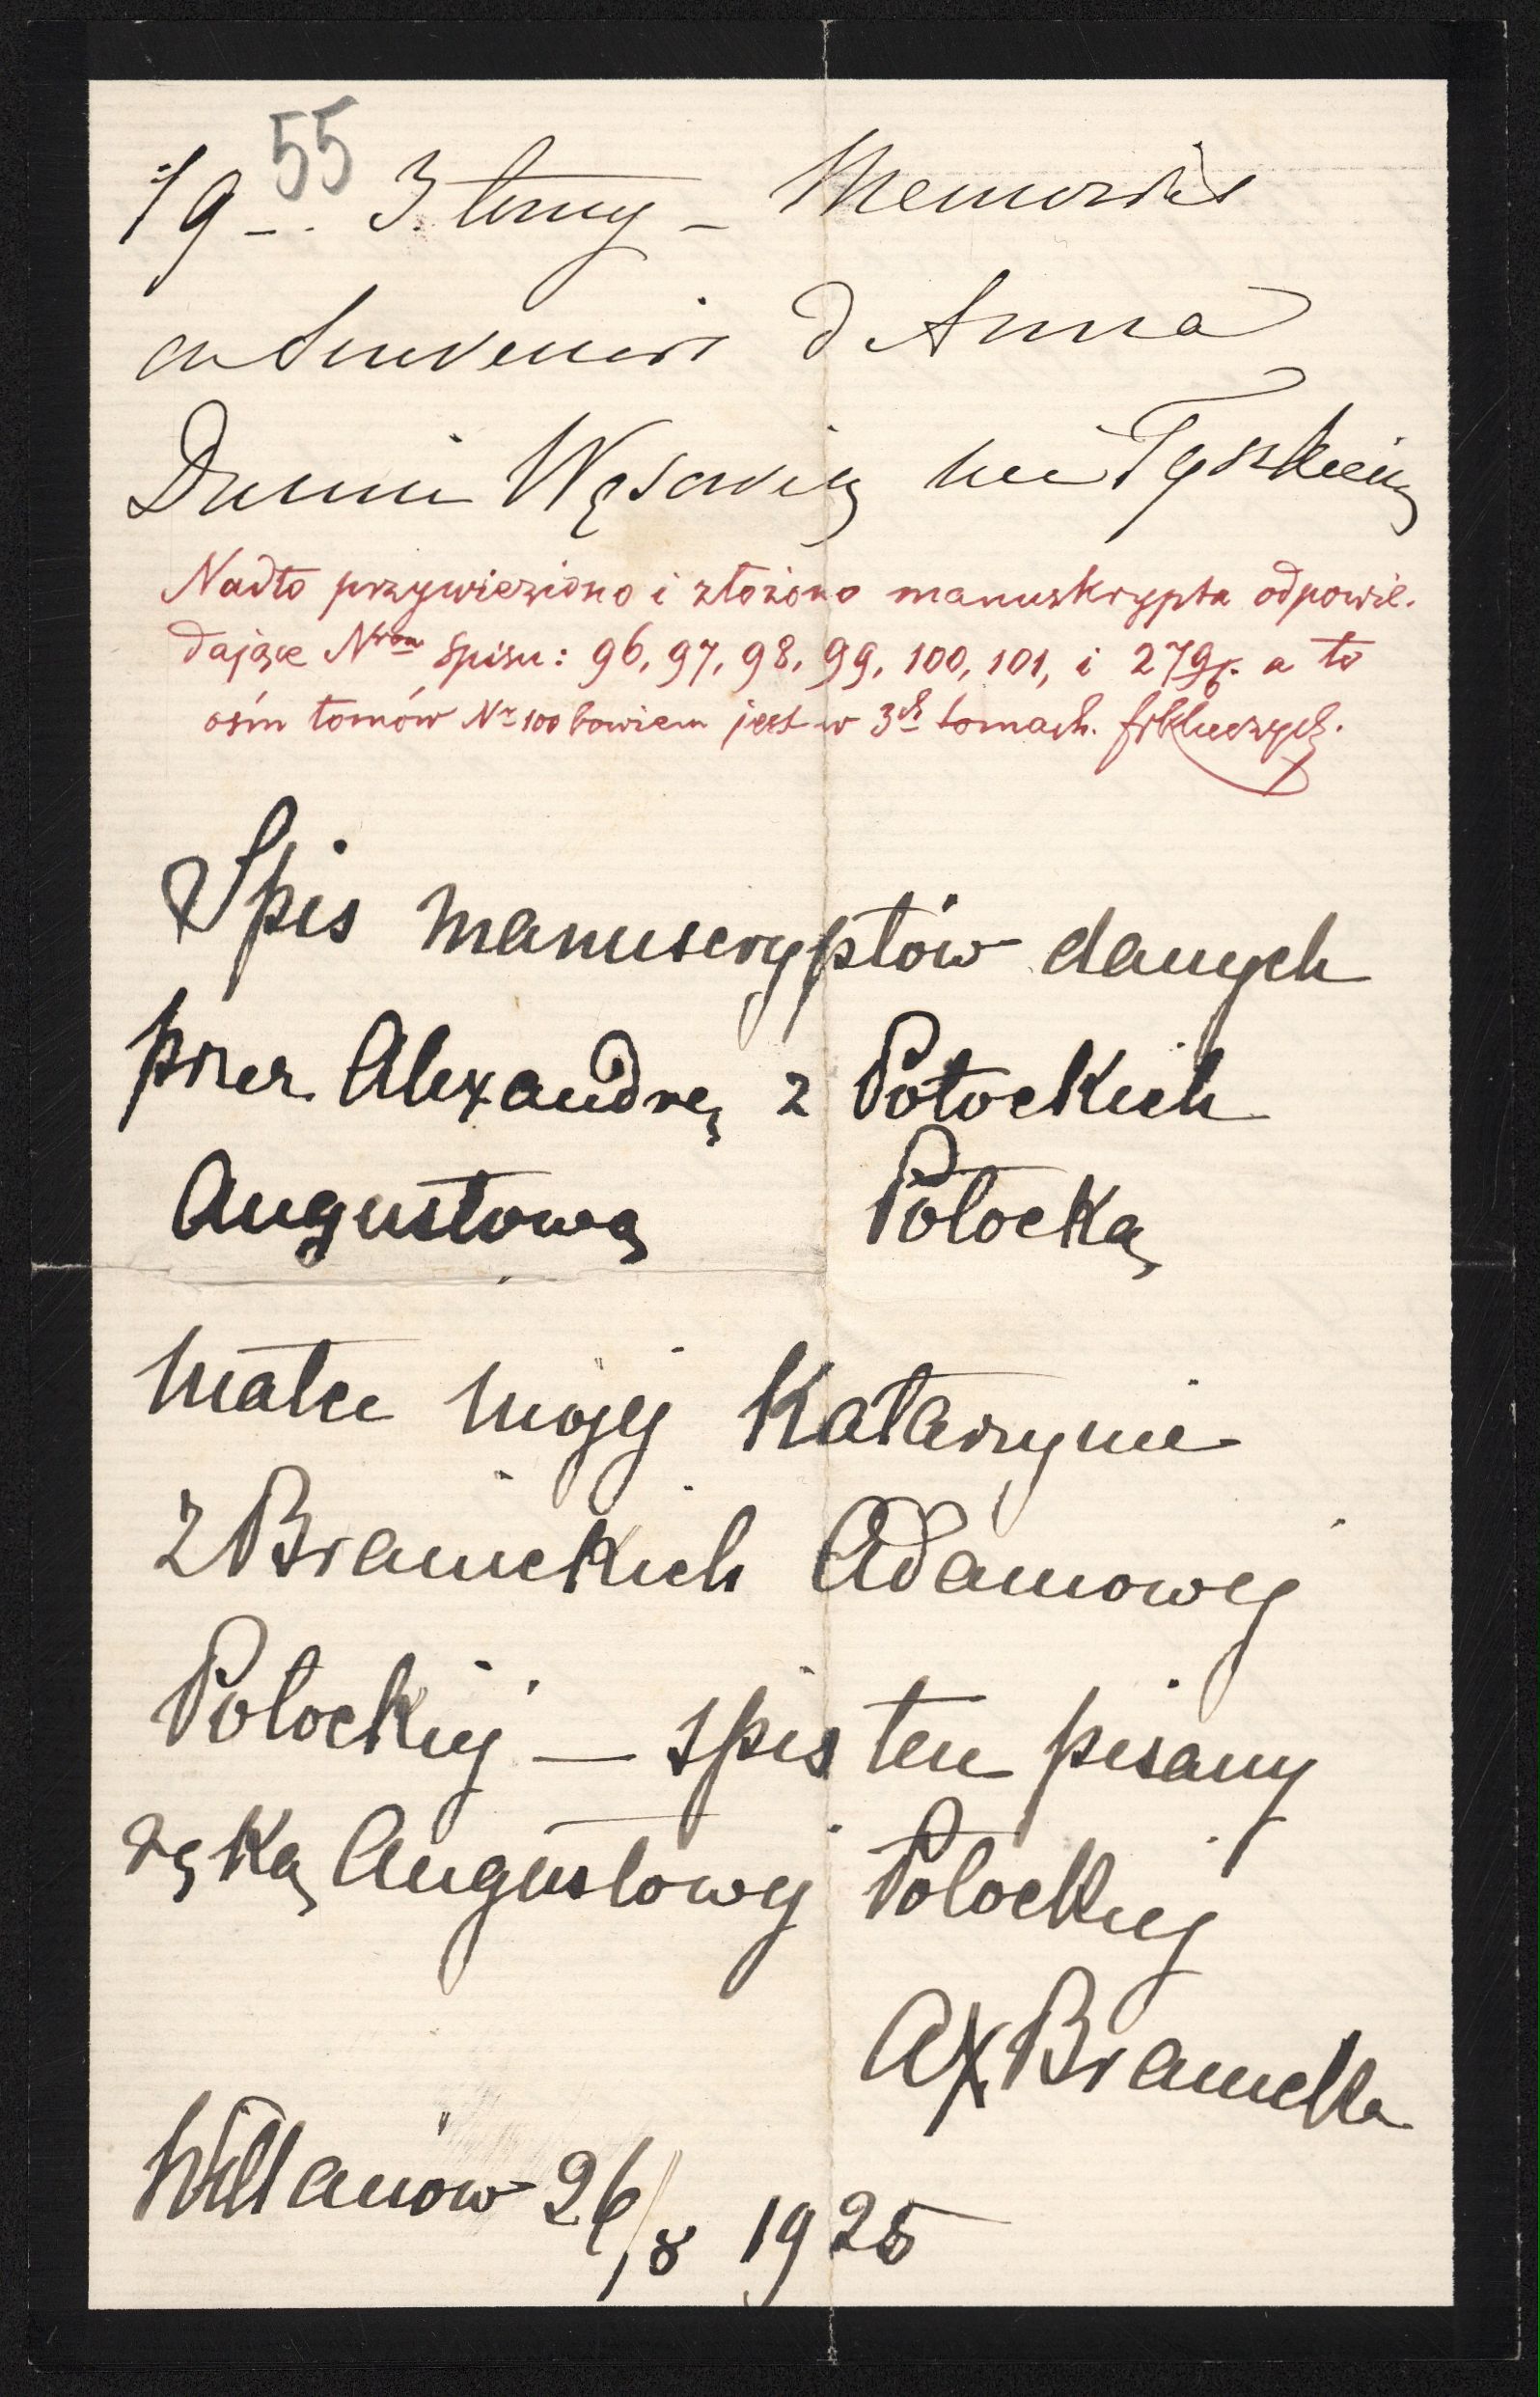 55
19 – . 3 tomy – Memoires
ou Souvenirs d Anna
Dunin Wąsowicz née Tyszkiewicz
Nadto przywieziono i złożono manuskrypta odpowie-
dające Nrom spisu: 96, 97, 98, 99, 100, 101, i 279 a to
ośm tomów Nr 100 bowiem jest w 3ch tomach.
Spis manuscryptów danych
przez Alexandrę z Potockich
Augustową Potocką
matce mojej Katarzynie
z Branickich Adamowej
Potockiej — spis ten pisany
ręką Augustowej Potockiej
AxBranicka
Willanów 26/8 1925